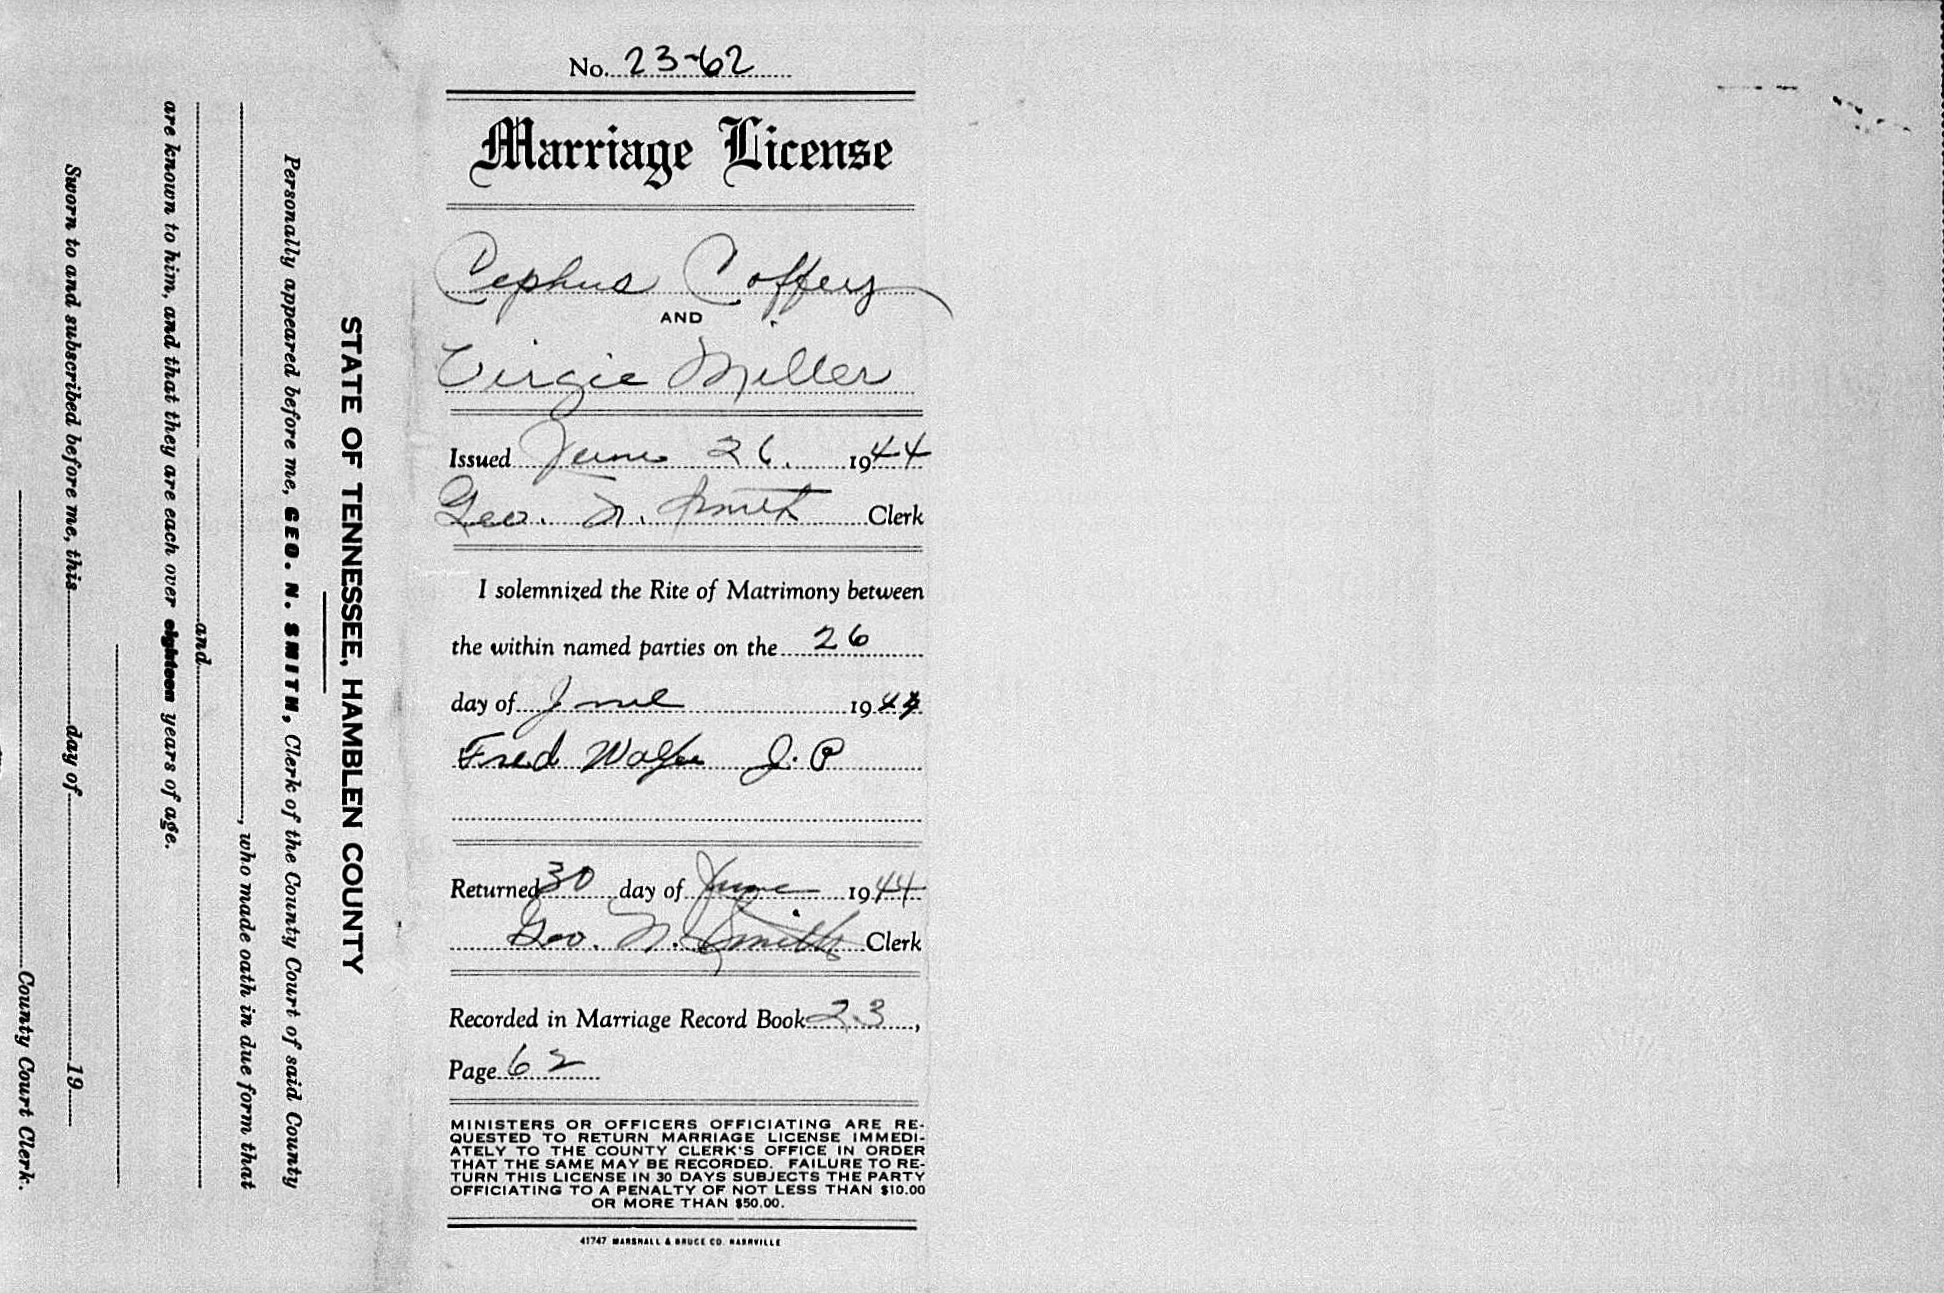 No. 23-62
Marriage License
Cephus Coffey
AND
Virgie Miller
Issued June 26. 1944
Geo. N. Smith Clerk
I solemnized the Rite of Matrimony between
the within named parties on the 26
day of June 1944
Fred Wolfe J.P
Returned 30 day of June 1944
Geo. N. Smith Clerk
Recorded in Marriage Record Book 23,
Page 62
MINISTERS OR OFFICERS OFFICIATING ARE RE-
QUESTED TO RETURN MARRIAGE LICENSE IMMEDI-
ATELY TO THE COUNTY CLERK'S OFFICE IN ORDER
THAT THE SAME MAY BE RECORDED. FAILURE TO RE-
TURN THIS LICENSE IN 30 DAYS SUBJECTS THE PARTY
OFFICIATING TO A PENALTY OF NOT LESS THAN $10.00
OR MORE THAN $50.00.
41747 MARSHALL & BRUCE CO. NASHVILLE
STATE OF TENNESSEE, HAMBLEN COUNTY
Personally appeared before me, GEO. N. SMITH, Clerk of the County Court of said County
, who made oath in due form that
and
are known to him, and that they are each over eighteen years of age.
Sworn to and subscribed before me, this day of 19
County Court Clerk.